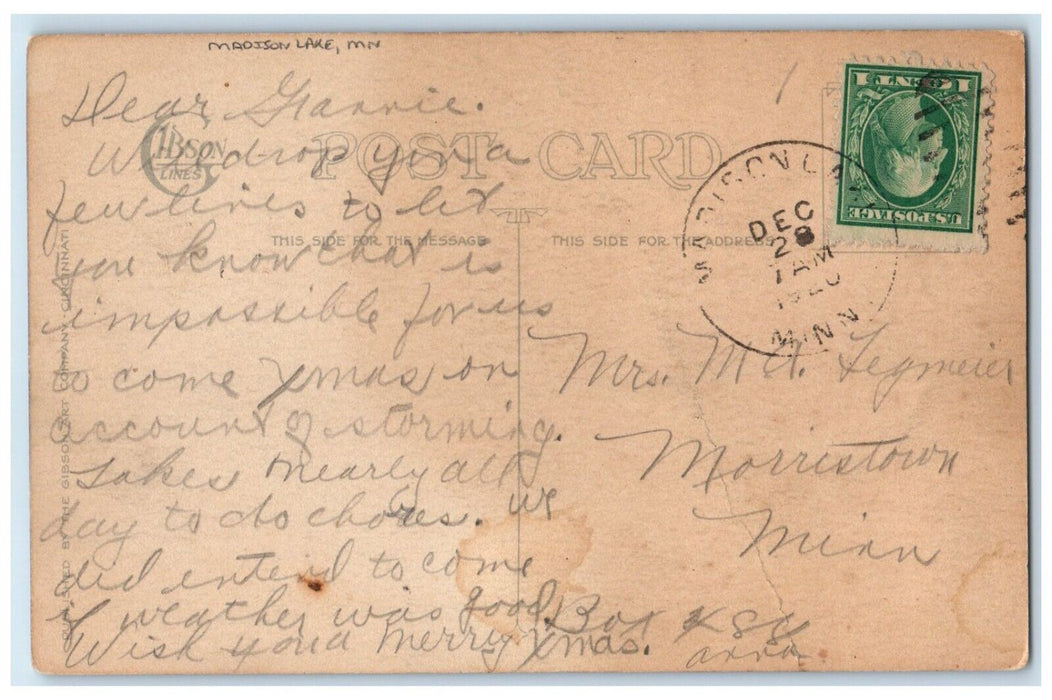 MADISON LAKE, MN
Dear Grannie.
Will drop you a
few lines to let
you know that is
impossible for us
to come Xmas on
account of storming.
takes nearly all
day to do chores. we
did entend to come
if weather was good.
Wish you a Merry Xmas.
GIBSON
LINES
POST CARD
THIS SIDE FOR THE MESSAGE
THIS SIDE FOR THE ADDRESS
PUBLISHED BY THE GIBSON ART COMPANY, CINCINNATI
1 CENT 1
U.S. POSTAGE
MADISON LAKE
DEC
28
7 AM
1920
MINN
1
Mrs. M A. Tegmeier
Morristown
Minn
Box 88
anna